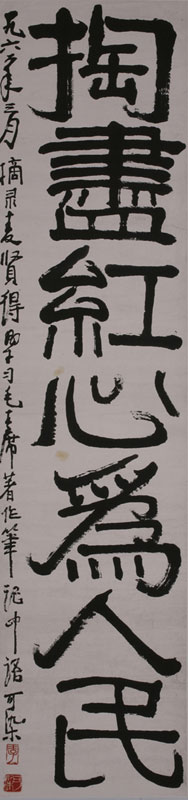 掏盡紅心爲人民
一九六六年三月摘录麦賢得学习毛主席著作筆記中語可染